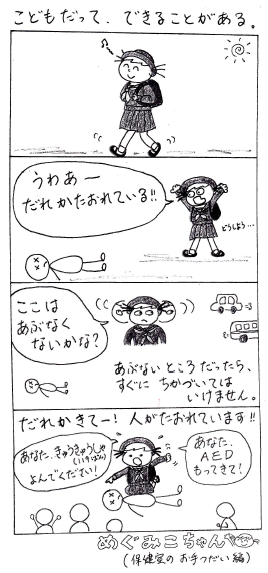 こどもだって、できることがある。
うわあー
だれかたおれている!!
どうしよう…
ここは
あぶなく
ないかな?
あぶないところだったら、
すぐに ちかづいては
いけません。
だれかきてー! 人がたおれています!!
あなた、きゅうきゅうしゃ
(119ばん)
よんでください!
あなた、
AED
もってきて!
めぐみこちゃん
(保健室の お手つだい編)